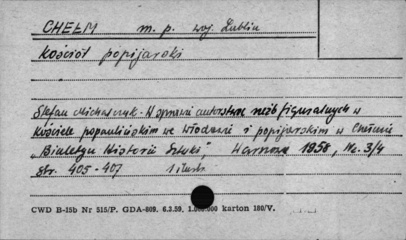 CHEŁM m. p. woj. Lublin
Kościół popijarski
Stefan Michalczuk - W sprawie autorstwa rzeźb figuralnych w
Kościele popaulińskim we Włodawie i popijarskim w Chełmie
„Biuletyn Historii Sztuki", Warszawa 1958, Nr. 3/4
str. 405-407 1 ilustr.
CWD B-15b Nr 515/P. GDA-809. 6.2.59. 1.000.000 karton 180/V.